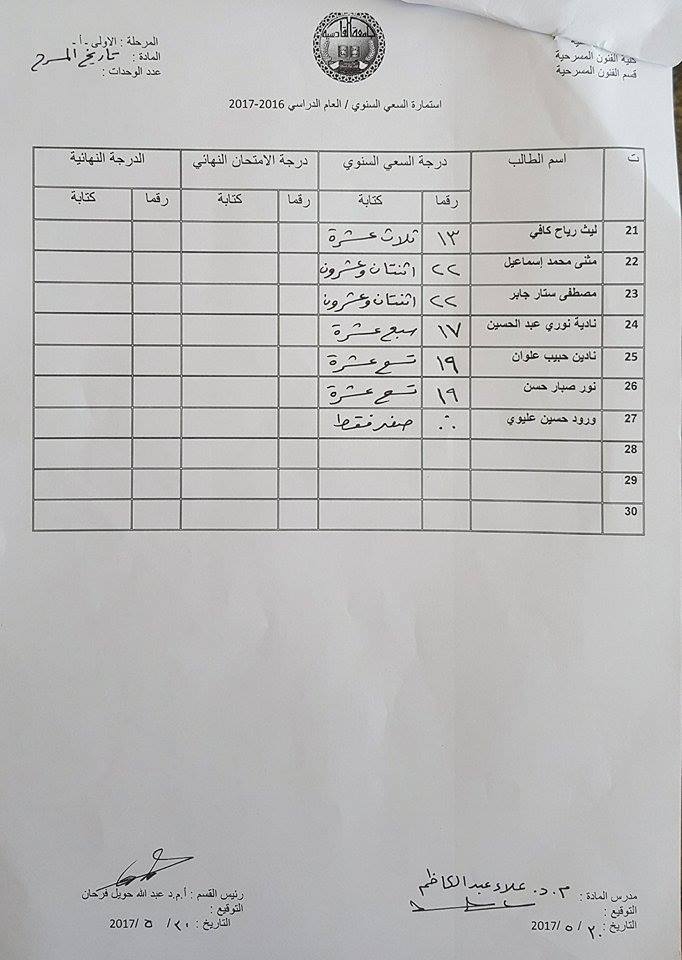 جامعة القادسية
كلية الفنون المسرحية
قسم الفنون المسرحية
المرحلة : الاولى - أ -
المادة : تاريخ المسرح
عدد الوحدات :
استمارة السعي السنوي / العام الدراسي 2016-2017
ت اسم الطالب درجة السعي السنوي درجة الامتحان النهائي الدرجة النهائية
رقما كتابة رقما كتابة رقما كتابة
21 ليث رياح كافي ١٣ ثلاث عشرة
22 مثنى محمد إسماعيل ٢٢ اثنتان وعشرون
23 مصطفى ستار جابر ٢٢ اثنتان وعشرون
24 نادية نوري عبد الحسين ١٧ سبع عشرة
25 نادين حبيب علوان ١٩ تسع عشرة
26 نور صبار حسن ١٩ تسع عشرة
27 ورود حسين عليوي صفر فقط
28
29
30
مدرس المادة : م.د. علاء عبد الكاظم
التوقيع :
التاريخ : ٢٠ / ٥ / 2017
رئيس القسم : أ.م.د عبد الله حويل فرحان
التوقيع :
التاريخ : / ٥ / 2017